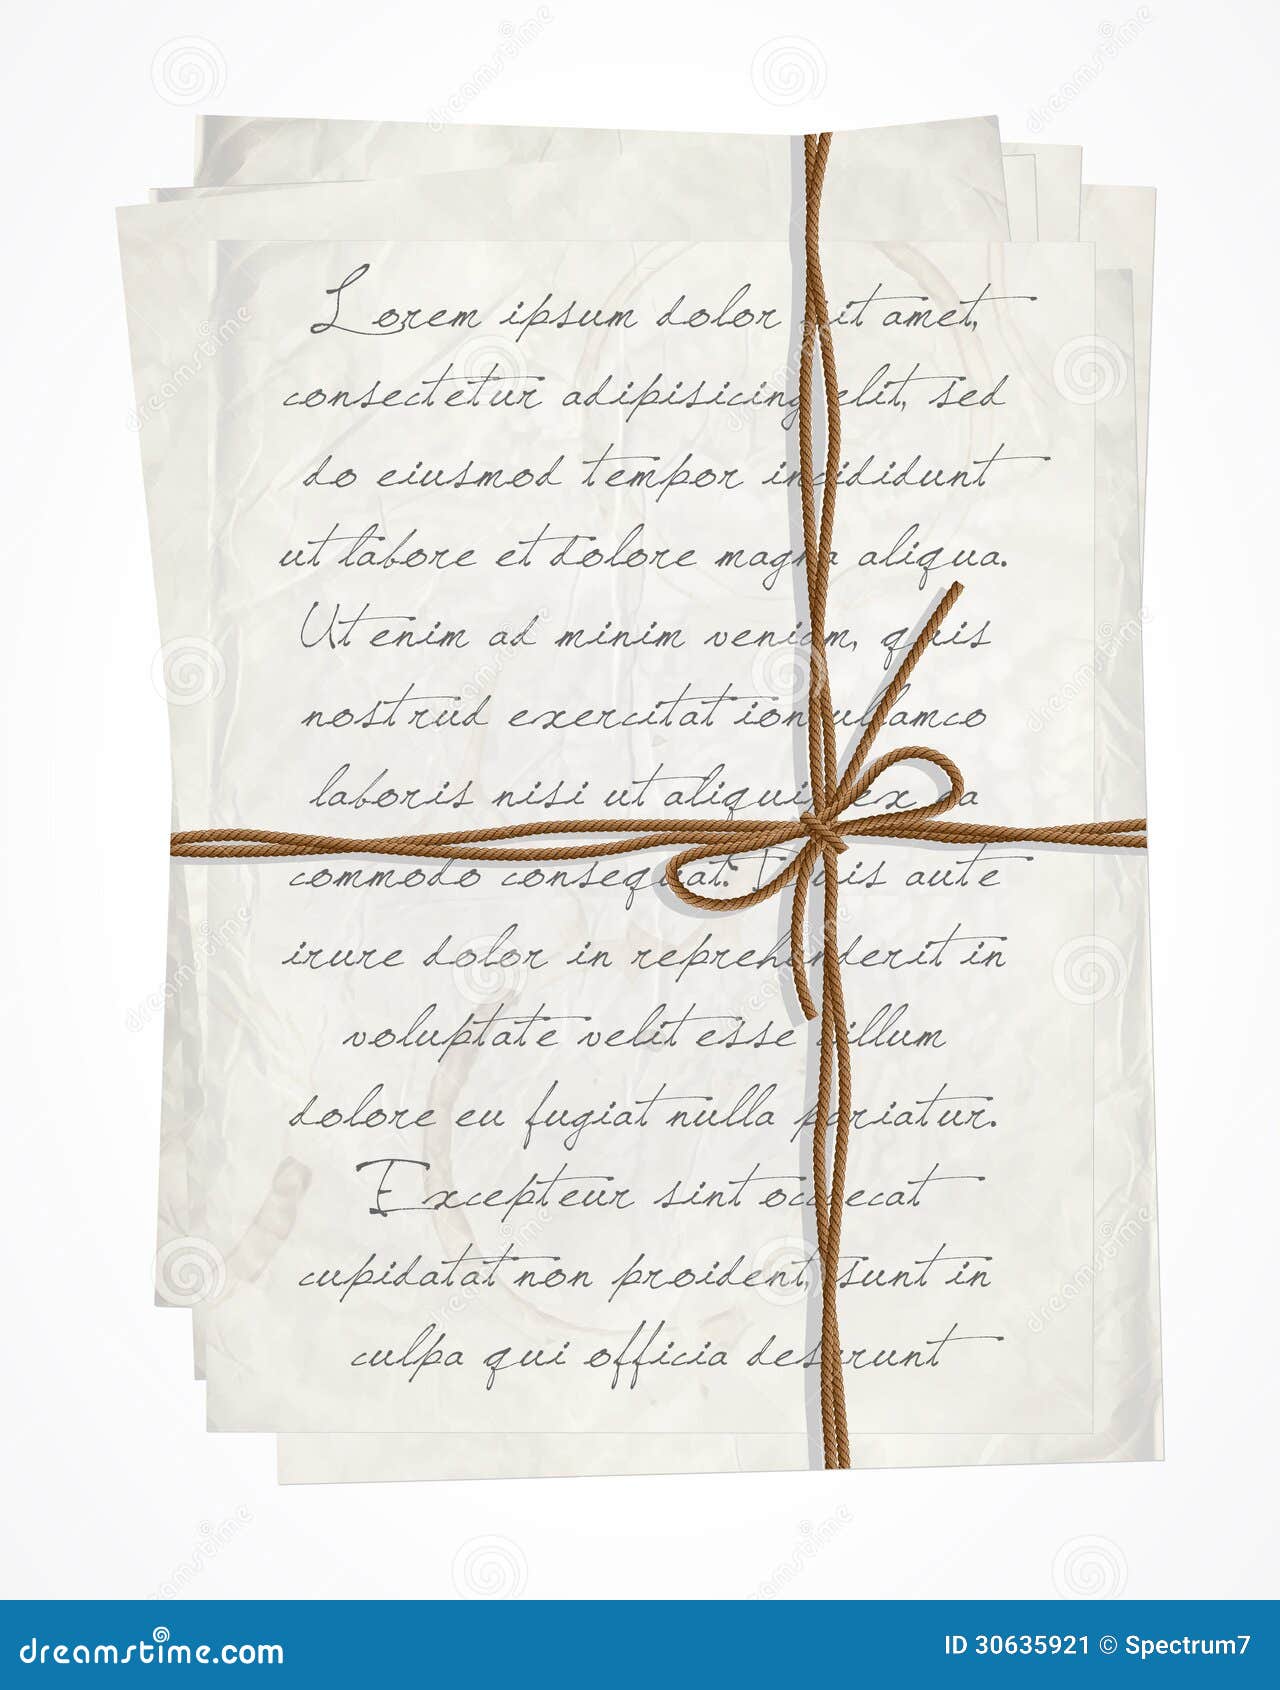 Lorem ipsum dolor sit amet,
consectetur adipisicing elit, sed
do eiusmod tempor incididunt
ut labore et dolore magna aliqua.
Ut enim ad minim veniam, quis
nostrud exercitation ullamco
laboris nisi ut ex ea
commodo consequat. Duis aute
irure dolor in reprehenderit in
voluptate velit esse cillum
dolore eu fugiat nulla pariatur.
Excepteur sint occaecat
cupidatat non proident, sunt in
culpa qui officia deserunt
dreamstime.com
ID 30635921 © Spectrum7